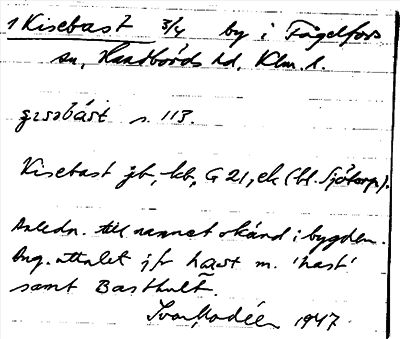 1 Kisebast 3/4 by i Fågelfors
sn, Handbörds hd, Klm. l.
s. 113.
Kisebast jb, kb, G 21, ek (bl. Sjötorp).
Anledn. till namnet okänd i bygden.
Ang. uttalet jfr hast m. 'hast'
samt Basthult.
Ivar Modéer 1947.